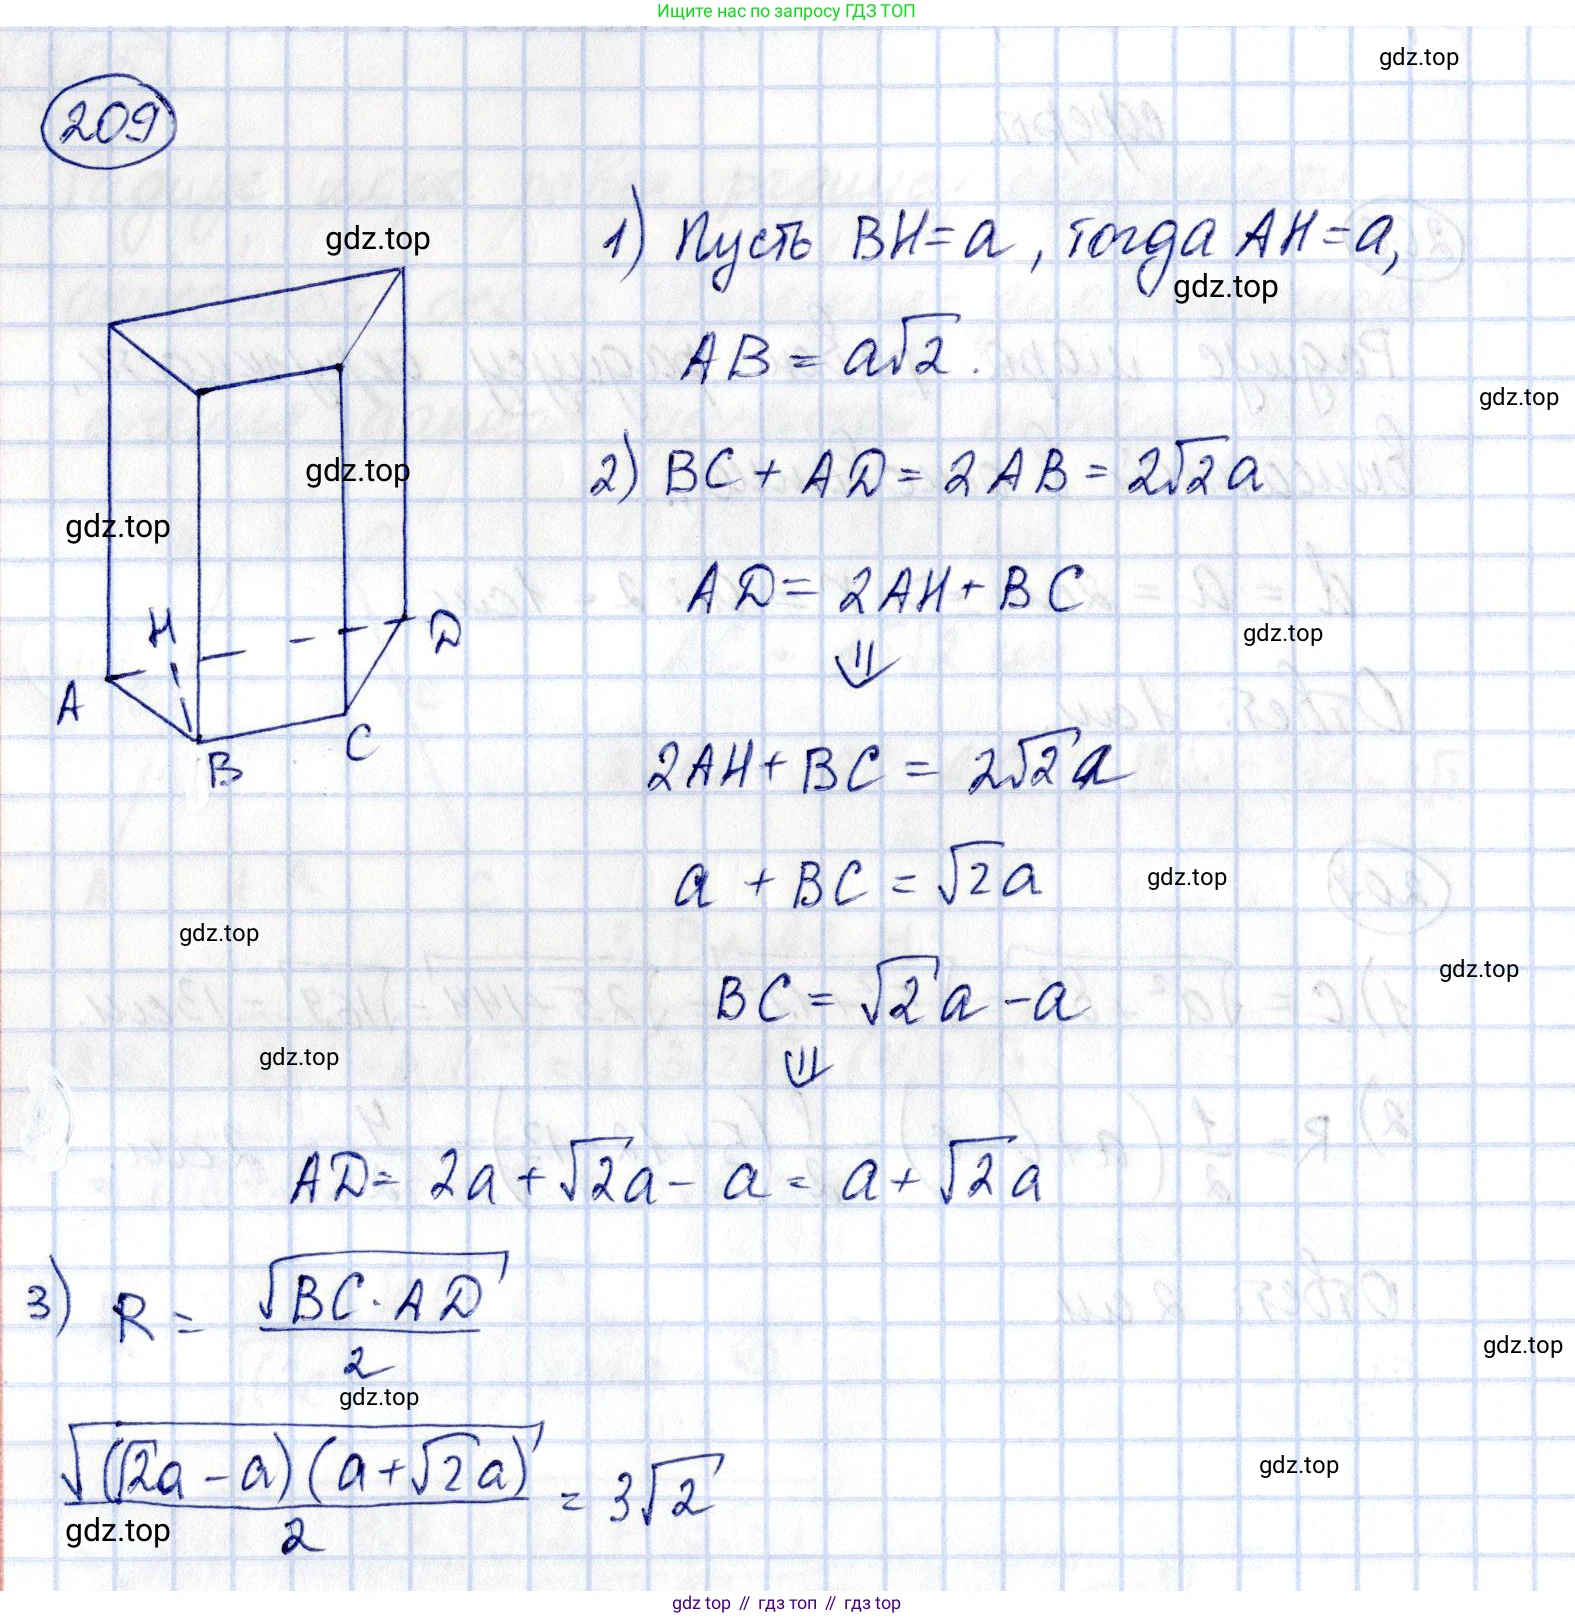 Ищите нас по запросу ГДЗ ТОП
gdz.top
209
gdz.top
1) Пусть BH=a, тогда AH=a,
gdz.top
AB = a√2.
gdz.top
2) BC + AD = 2AB = 2√2a
gdz.top
gdz.top
AD = 2AH + BC
H
D
gdz.top
⇓
A
B
C
2AH + BC = 2√2a
a + BC = √2a
gdz.top
gdz.top
gdz.top
BC = √2a - a
gdz.top
⇓
AD = 2a + √2a - a = a + √2a
3) R = √(BC · AD) / 2
gdz.top
gdz.top
√((√2a - a)(a + √2a)) / 2 = 3√2
gdz.top
gdz.top
gdz top // гдз топ // гдз top